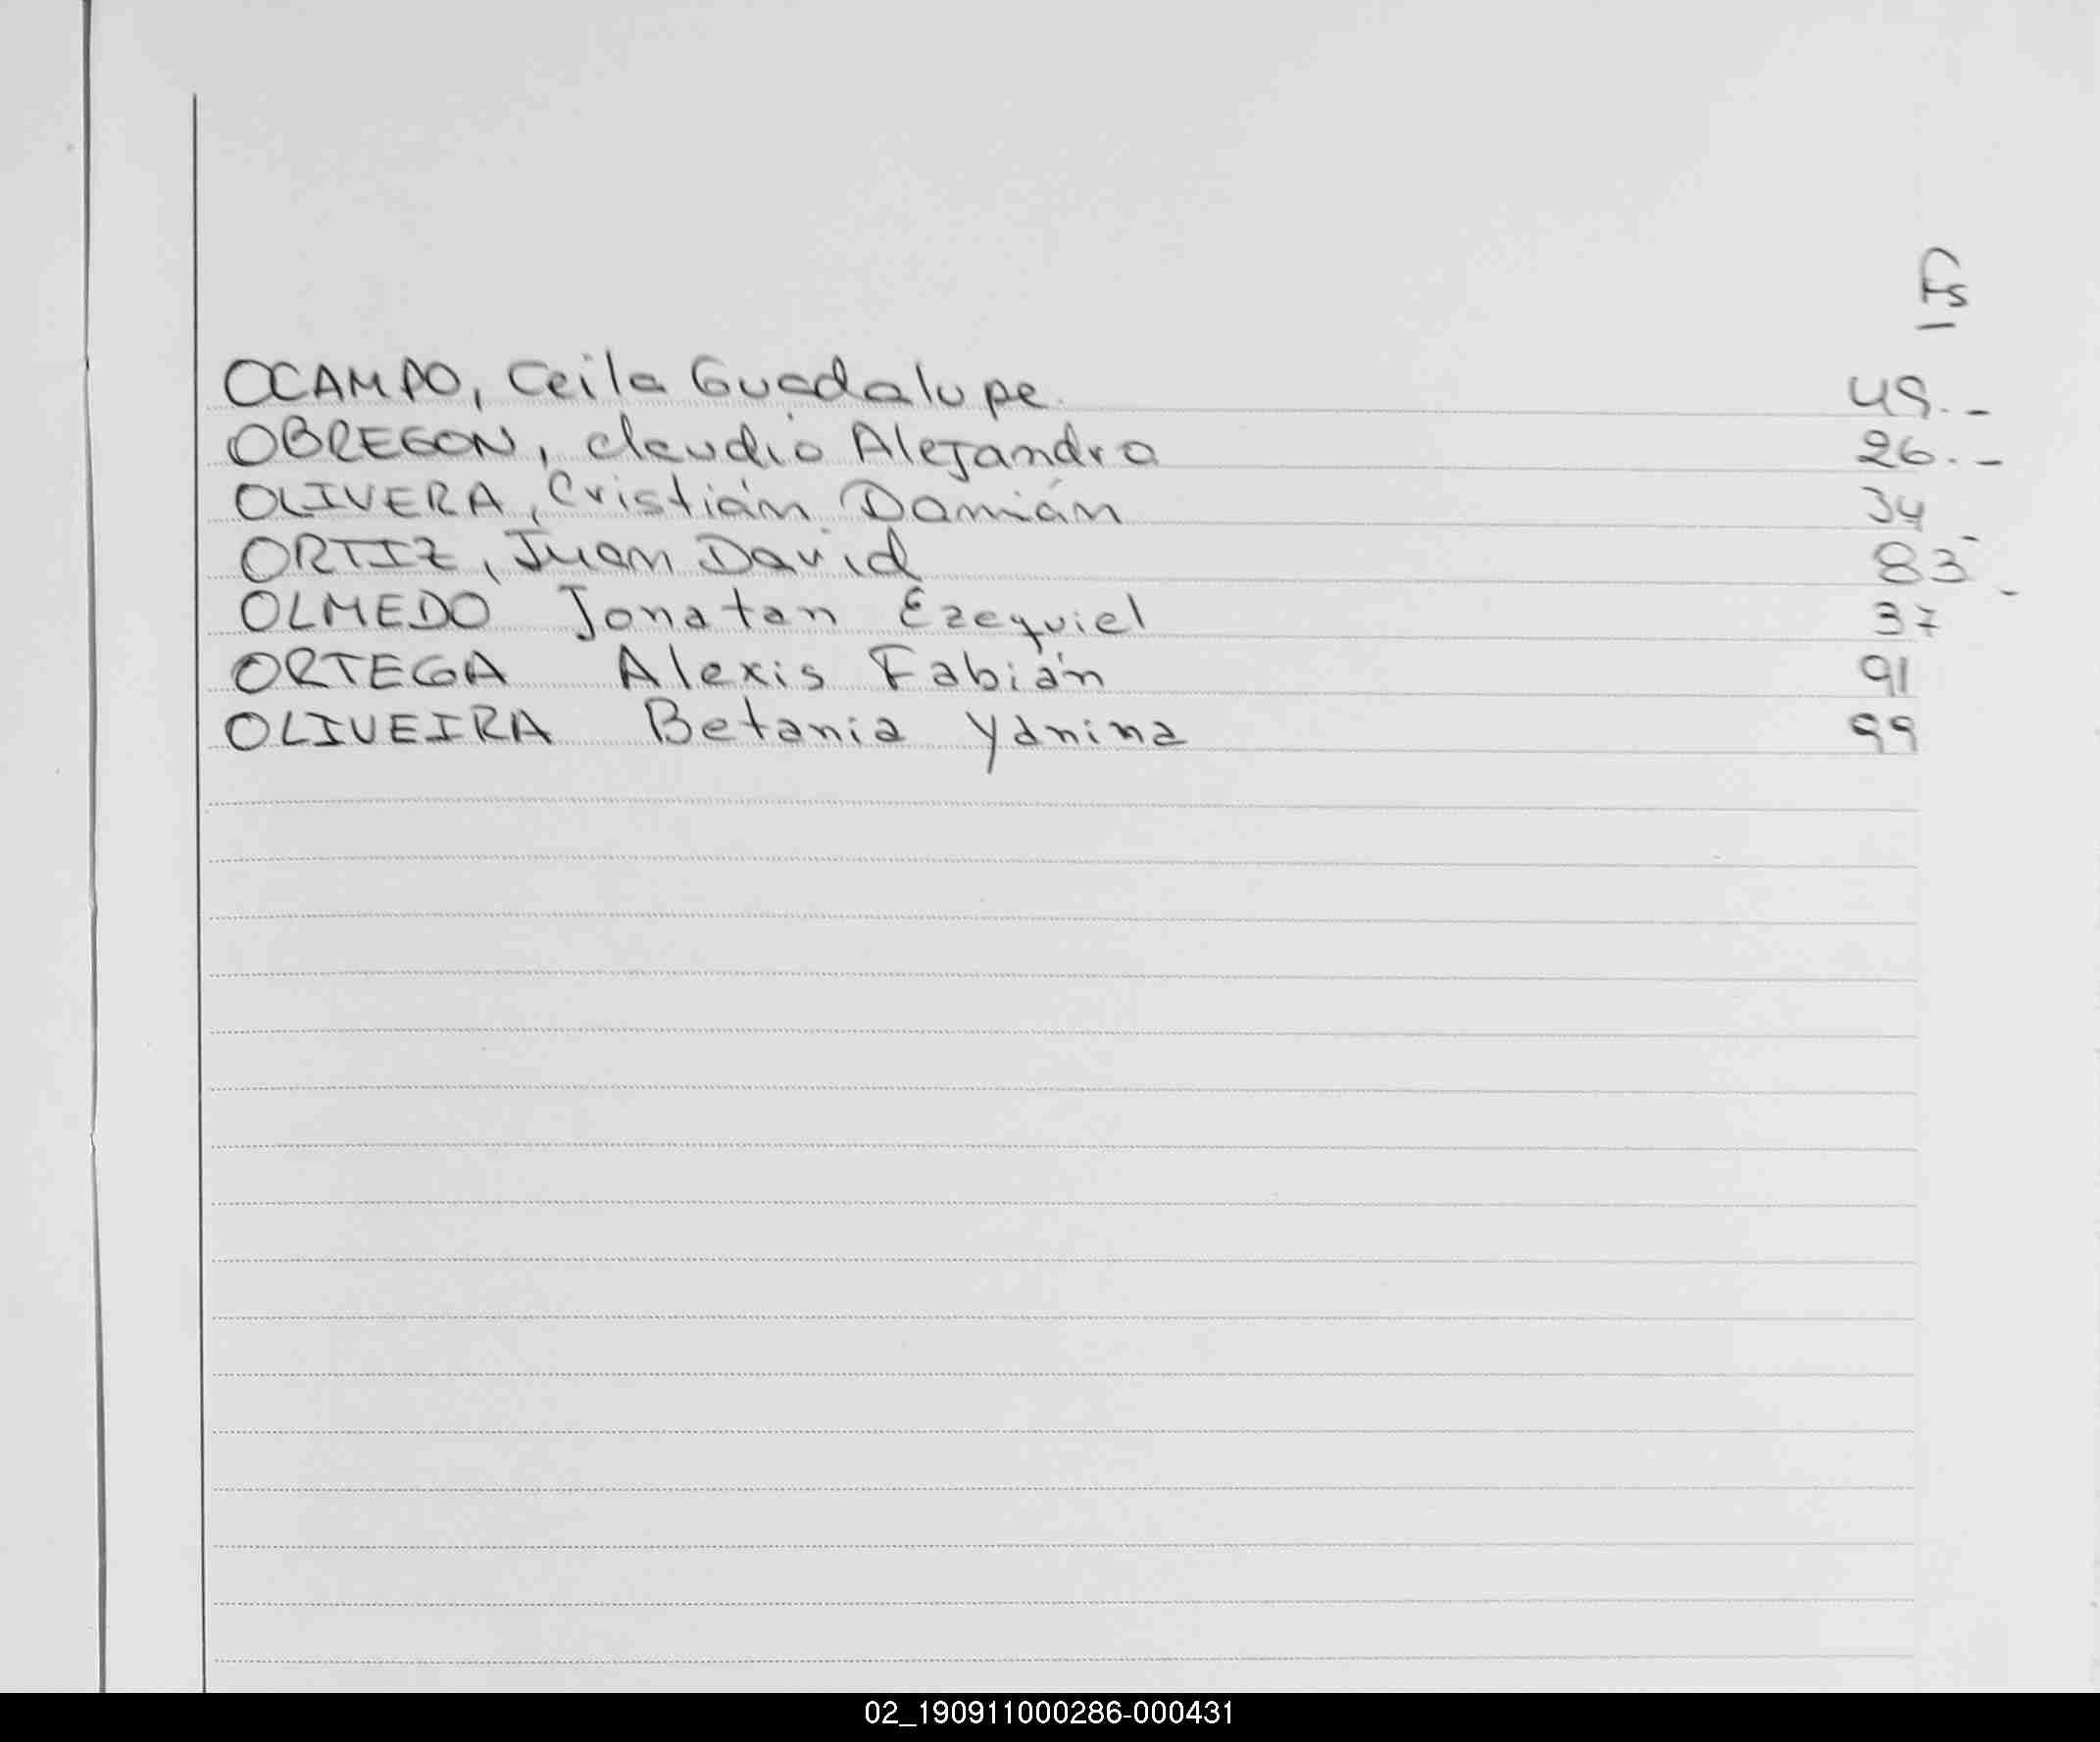 Fs
OCAMPO, Ceila Guadalupe. 49.-
OBREGON, Claudio Alejandro 26.-
OLIVERA, Cristián Damián 34
ORTIZ, Juan David 83-
OLMEDO Jonatan Ezequiel 37-
ORTEGA Alexis Fabián 91
OLIVEIRA Betania Yanina 99
02_190911000286-000431